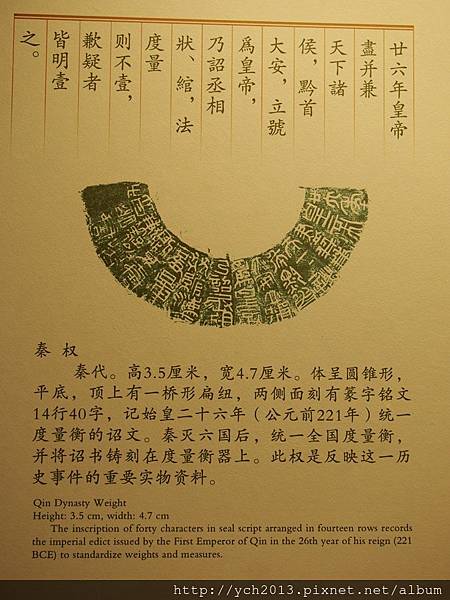 廿六年皇帝
盡并兼
天下諸
侯，黔首
大安，立號
爲皇帝，
乃詔丞相
狀、綰，法
度量
则不壹，
歉疑者
皆明壹
之。
秦 权
秦代。高3.5厘米，宽4.7厘米。体呈圆锥形，
平底，顶上有一桥形扁纽，两侧面刻有篆字铭文
14行40字，记始皇二十六年（公元前221年）统一
度量衡的诏文。秦灭六国后，统一全国度量衡，
并将诏书铸刻在度量衡器上。此权是反映这一历
史事件的重要实物资料。
Qin Dynasty Weight
Height: 3.5 cm, width: 4.7 cm
The inscription of forty characters in seal script arranged in fourteen rows records
the imperial edict issued by the First Emperor of Qin in the 26th year of his reign (221
BCE) to standardize weights and measures.
http://ych2013.pixnet.net/album